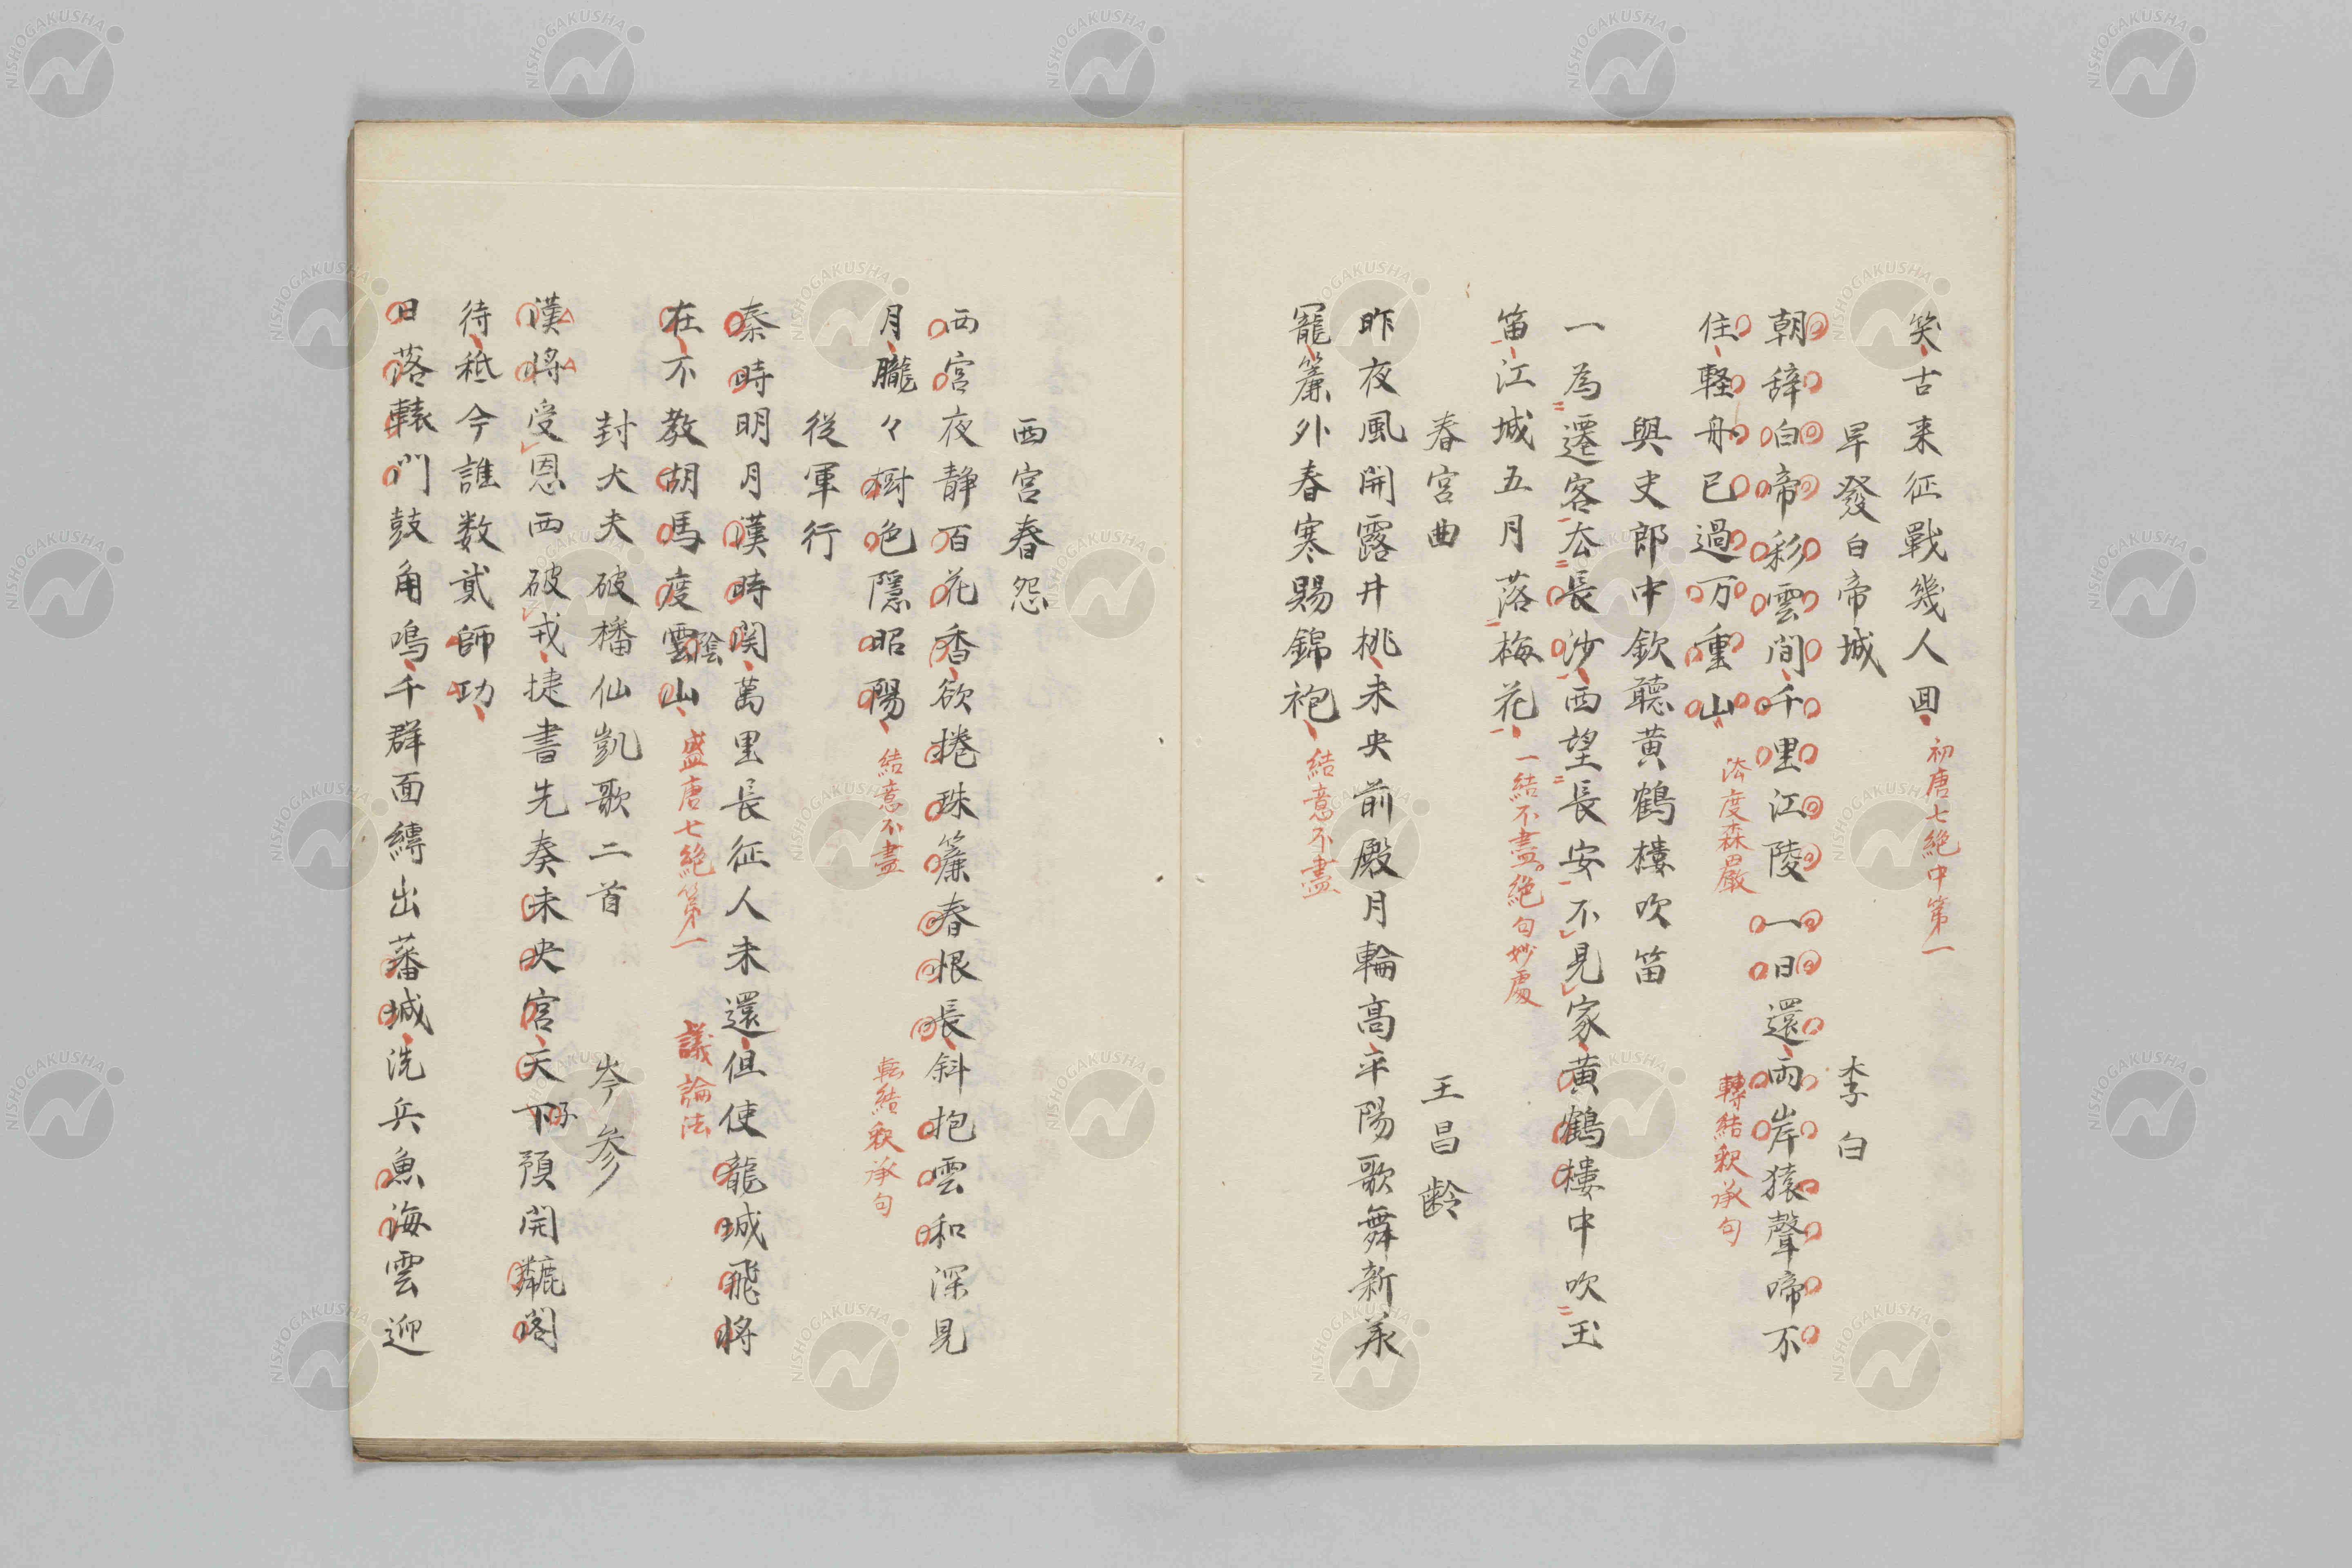 笑古来征戰幾人回初唐七絶中第一
早發白帝城　李白
朝辞白帝彩雲間千里江陵一日還兩岸猿聲啼不
住軽舟已過万重山法度森嚴　轉結釈承句
與史郎中欽聽黄鶴樓吹笛
一為遷客去長沙西望長安不見家黄鶴樓中吹玉
笛江城五月落梅花一結不盡絶句妙處
春宮曲　王昌齢
昨夜風開露井桃未央前殿月輪高平陽歌舞新承
寵簾外春寒賜錦袍結意不盡
西宮春怨
西宮夜静百花香欲捲珠簾春恨長斜抱雲和深見
月朧々樹色隠昭陽結意不盡　転結釈承句
従軍行
秦時明月漢時関萬里長征人未還但使龍城飛将
在不教胡馬度雲陰山盛唐七絶第一　議論法
封大夫破橎仙凱歌二首　岑参
漢将受恩西破戎捷書先奏未央宮天下子預開麟閣
待秪今誰数貳師功
日落轅門鼓角鳴千群面縛出蕃城洗兵魚海雲迎
NISHOGAKUSHA